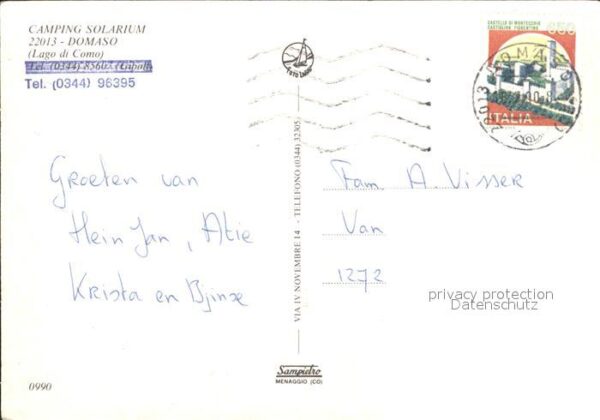 CAMPING SOLARIUM
22013 - DOMASO
(Lago di Como)
Tel. (0344) 85602
Tel. (0344) 96395
650
CASTELLO DI MONTECCHIO
CASTIGLION FIORENTINO
ITALIA
22013
Groeten van
Hein Jan, Atie
Krista en Bjinse
VIA IV NOVEMBRE 14 - TELEFONO (0344) 32305
Fam A. Visser
Van
1272
privacy protection
Datenschutz
Sampietro
MENAGGIO (CO)
0990